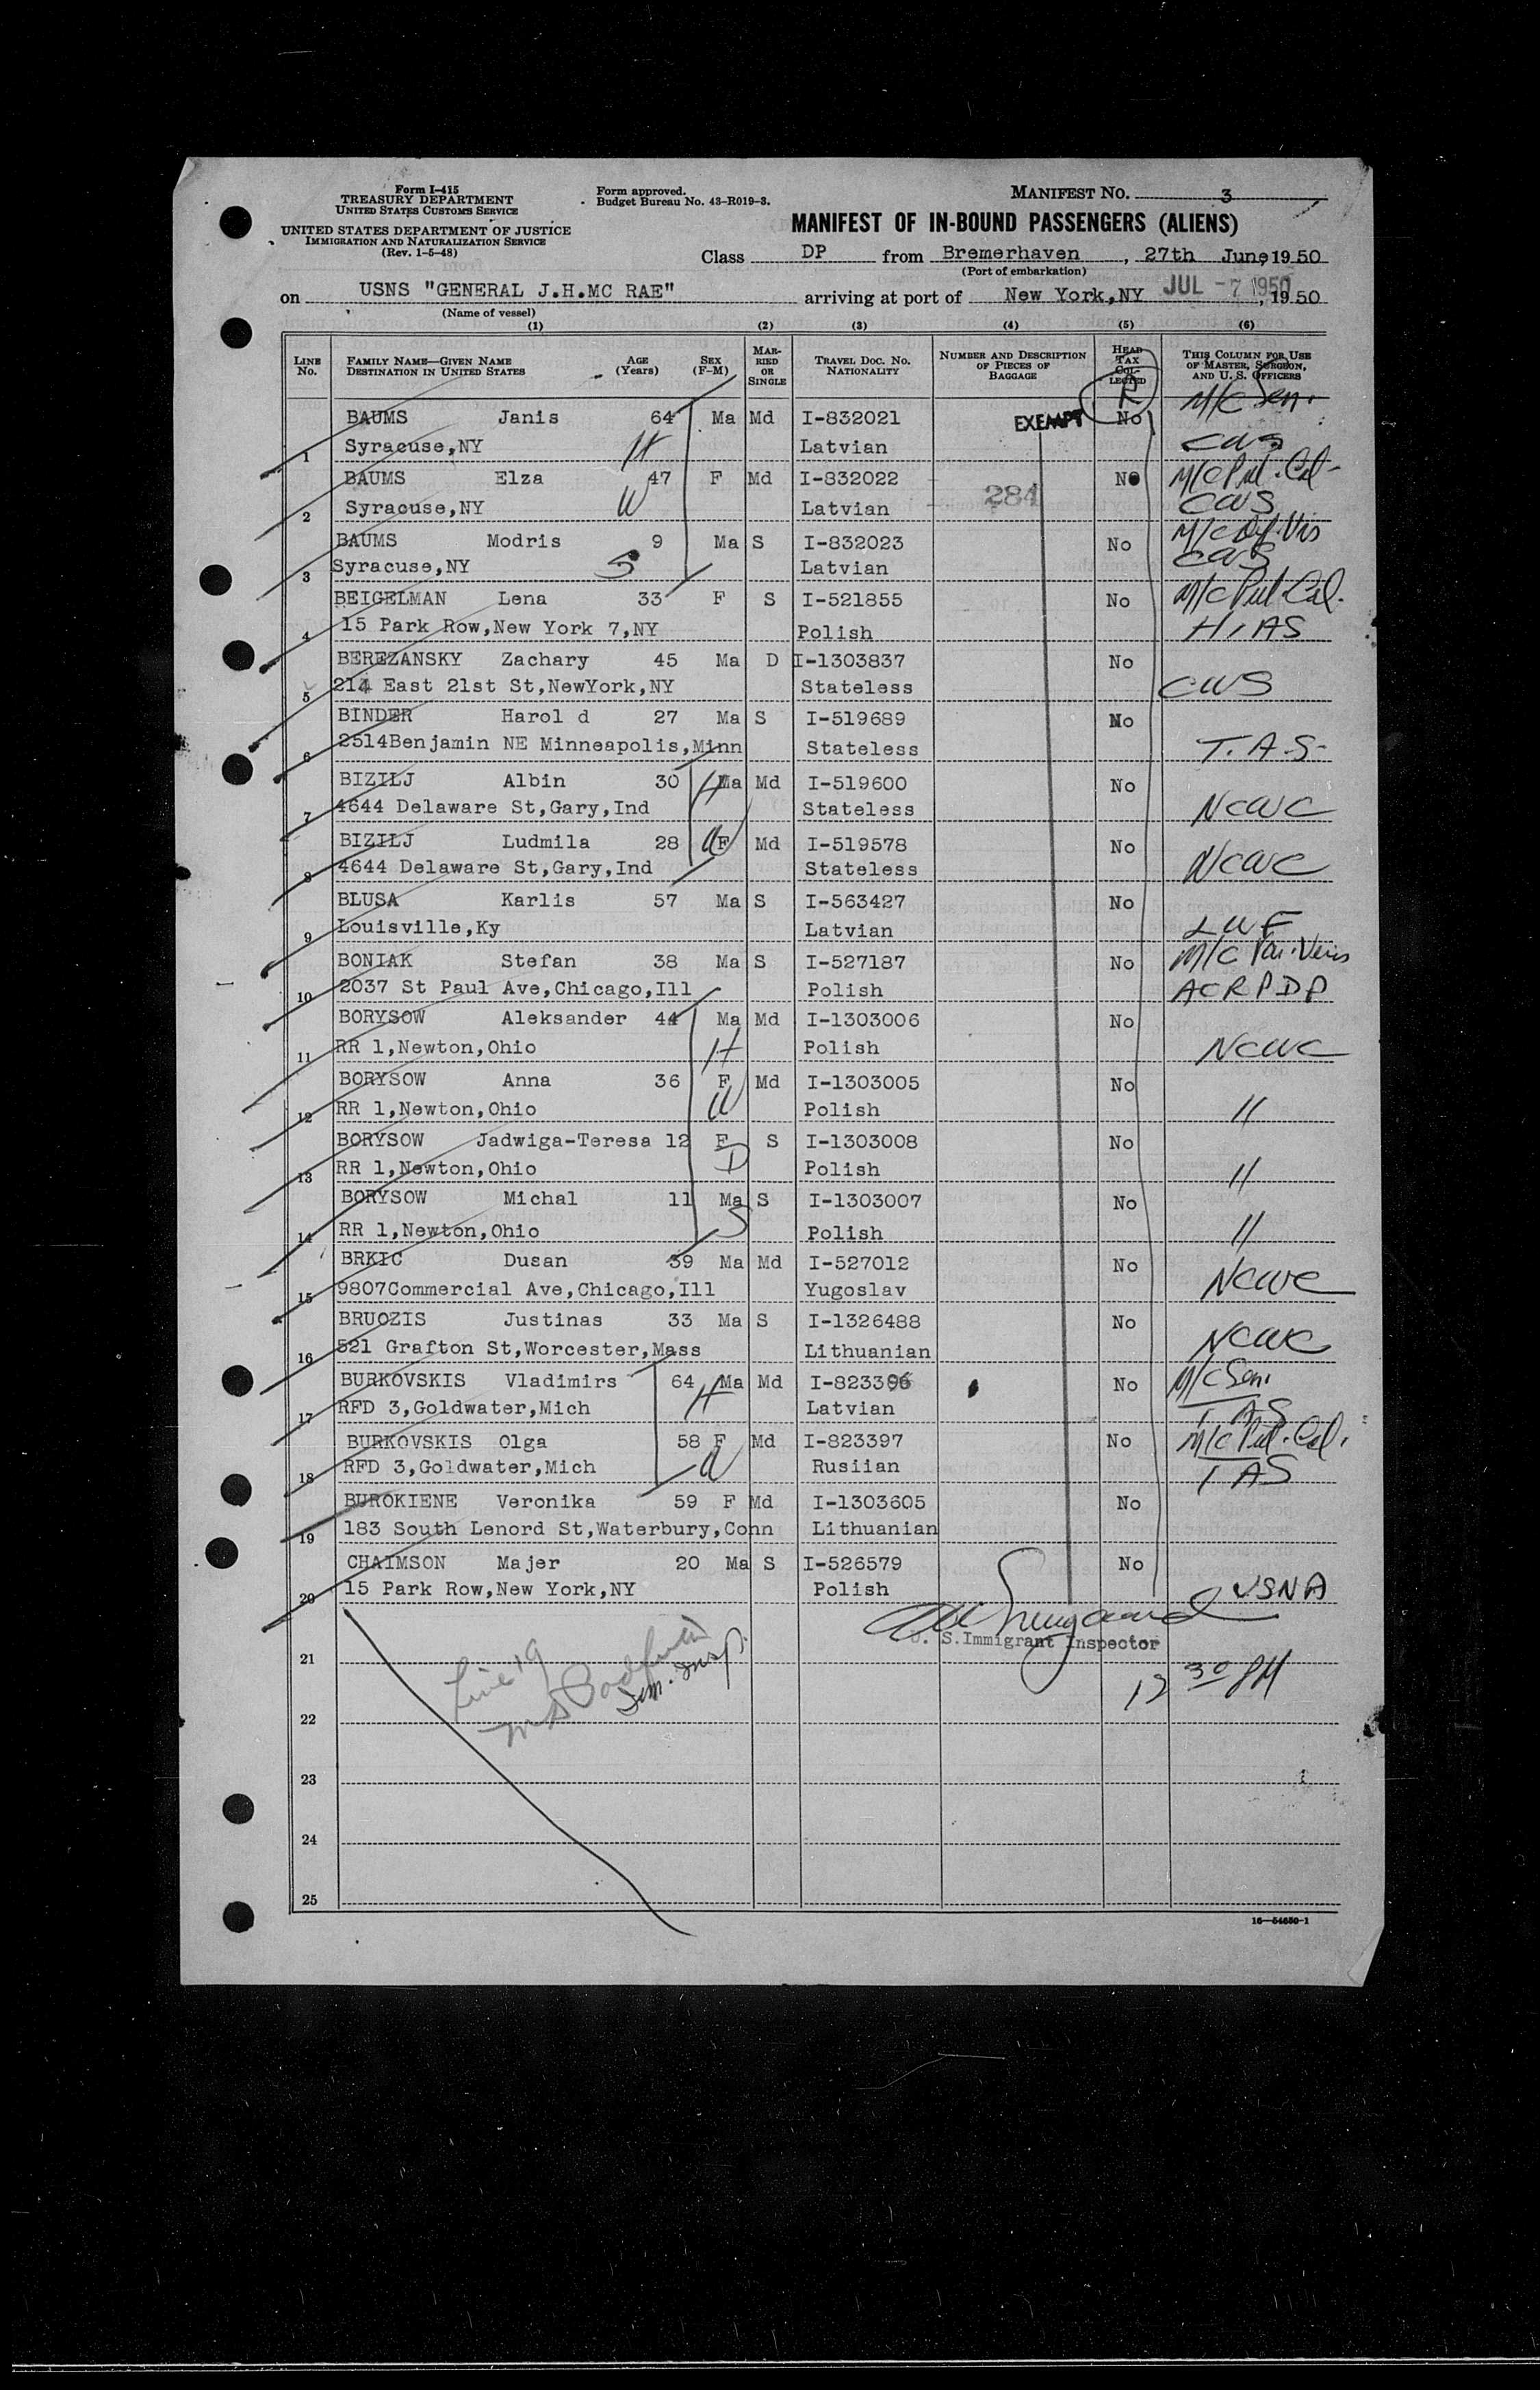 Form I-415
TREASURY DEPARTMENT
UNITED STATES CUSTOMS SERVICE
UNITED STATES DEPARTMENT OF JUSTICE
IMMIGRATION AND NATURALIZATION SERVICE
(Rev. 1-5-48)
Form approved.
Budget Bureau No. 43-R019-3.
MANIFEST NO. 3
MANIFEST OF IN-BOUND PASSENGERS (ALIENS)
Class DP from Bremerhaven, 27th June, 1950
(Port of embarkation)
on USNS "GENERAL J.H.MC RAE" arriving at port of New York,NY JUL -7 1950, 1950
(Name of vessel)
(1) (2) (3) (4) (5) (6)
LINE NO. FAMILY NAME—GIVEN NAME DESTINATION IN UNITED STATES AGE (Years) SEX (F-M) MARRIED OR SINGLE TRAVEL DOC. NO. NATIONALITY NUMBER AND DESCRIPTION OF PIECES OF BAGGAGE HEAD TAX COLLECTED THIS COLUMN FOR USE OF MASTER, SURGEON, AND U. S. OFFICERS
R
BAUMS Janis 64 Ma Md I-832021 EXEMPT No M/C Sen.
1 Syracuse,NY H Latvian CWS
BAUMS Elza 47 F Md I-832022 284 No M/C Pul. Cal-
2 Syracuse,NY W Latvian CWS
BAUMS Modris 9 Ma S I-832023 No M/C Df. Vis
3 Syracuse,NY S Latvian CWS
BEIGELMAN Lena 33 F S I-521855 No M/C Pul Cal.
4 15 Park Row,New York 7,NY Polish HIAS
BEREZANSKY Zachary 45 Ma D I-1303837 No
5 214 East 21st St,NewYork,NY Stateless CWS
BINDER Harol d 27 Ma S I-519689 No
6 2514Benjamin NE Minneapolis,Minn Stateless T.A.S-
BIZILJ Albin 30 H Ma Md I-519600 No
7 4644 Delaware St,Gary,Ind Stateless NCWC
BIZILJ Ludmila 28 W F Md I-519578 No
8 4644 Delaware St,Gary,Ind Stateless NCWC
BLUSA Karlis 57 Ma S I-563427 No
9 Louisville,Ky Latvian LWF
BONIAK Stefan 38 Ma S I-527187 No M/C Var. Veins
10 2037 St Paul Ave,Chicago,Ill Polish ACRPDP
BORYSOW Aleksander 44 Ma Md I-1303006 No
11 RR 1,Newton,Ohio H Polish NCWC
BORYSOW Anna 36 F Md I-1303005 No
12 RR 1,Newton,Ohio W Polish "
BORYSOW Jadwiga-Teresa 12 F S I-1303008 No
13 RR 1,Newton,Ohio D Polish "
BORYSOW Michal 11 Ma S I-1303007 No
14 RR 1,Newton,Ohio S Polish "
BRKIC Dusan 39 Ma Md I-527012 No
15 9807Commercial Ave,Chicago,Ill Yugoslav NCWC
BRUOZIS Justinas 33 Ma S I-1326488 No
16 521 Grafton St,Worcester,Mass Lithuanian NCWC
BURKOVSKIS Vladimirs 64 Ma Md I-823396 No M/C Sen.
17 RFD 3,Goldwater,Mich H Latvian IAS
BURKOVSKIS Olga 58 F Md I-823397 No M/C Pul. Cal.
18 RFD 3,Goldwater,Mich W Rusiian IAS
BUROKIENE Veronika 59 F Md I-1303605 No
19 183 South Lenord St,Waterbury,Conn Lithuanian
CHAIMSON Majer 20 Ma S I-526579 No
20 15 Park Row,New York,NY Polish USNA
U. S.Immigrant Inspector
21 Line 19
Imm. Insp.
12 30 PM
22
23
24
25
16—54650-1